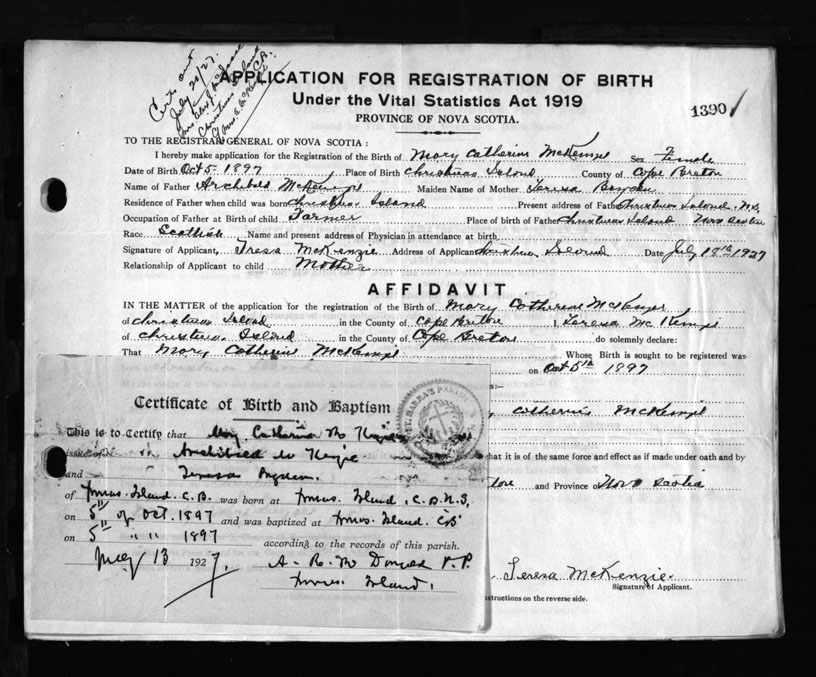 Certs out
July 20/27.
Christmas Island
APPLICATION FOR REGISTRATION OF BIRTH
Under the Vital Statistics Act 1919
PROVINCE OF NOVA SCOTIA.
13901
TO THE REGISTRAR GENERAL OF NOVA SCOTIA :
I hereby make application for the Registration of the Birth of Mary Catherine McKenzie Sex Female
Date of Birth Oct 5- 1897 Place of Birth Christmas Island County of Cape Breton
Name of Father Archibald McKenzie Maiden Name of Mother Teresa
Residence of Father when child was born Christmas Island Present address of Father Christmas Island. N.S.
Occupation of Father at Birth of child Farmer Place of birth of Father Christmas Island Nova Scotia
Race Scottish Name and present address of Physician in attendance at birth
Signature of Applicant, Tresa McKenzie Address of Applicant Christmas Island Date July 13th 1927
Relationship of Applicant to child Mother
AFFIDAVIT
IN THE MATTER of the application for the registration of the Birth of Mary Catherine McKenzie
of Christmas Island in the County of Cape Breton I, Teresa McKenzie
of Christmas Island in the County of Cape Breton do solemnly declare:
That Mary Catherine McKenzie Whose Birth is sought to be registered was
on Oct 5th 1897
s:—
Catherine McKenzie
that it is of the same force and effect as if made under oath and by
and Province of Nova Scotia
Teresa McKenzie.
Signature of Applicant.
structions on the reverse side.
Certificate of Birth and Baptism
ST. BARRA'S PARISH
This is to Certify that Mary Catherine McKenzie
issue of Archibald McKenzie
and Teresa
of Xmas. Island. C.B. was born at Xmas. Island. C.B.N.S,
on 5th of Oct. 1897 and was baptized at Xmas. Island. C.B.
on 5th " " 1897 according to the records of this parish.
May 13 1927. A. R. McDonald P.P.
Xmas Island.